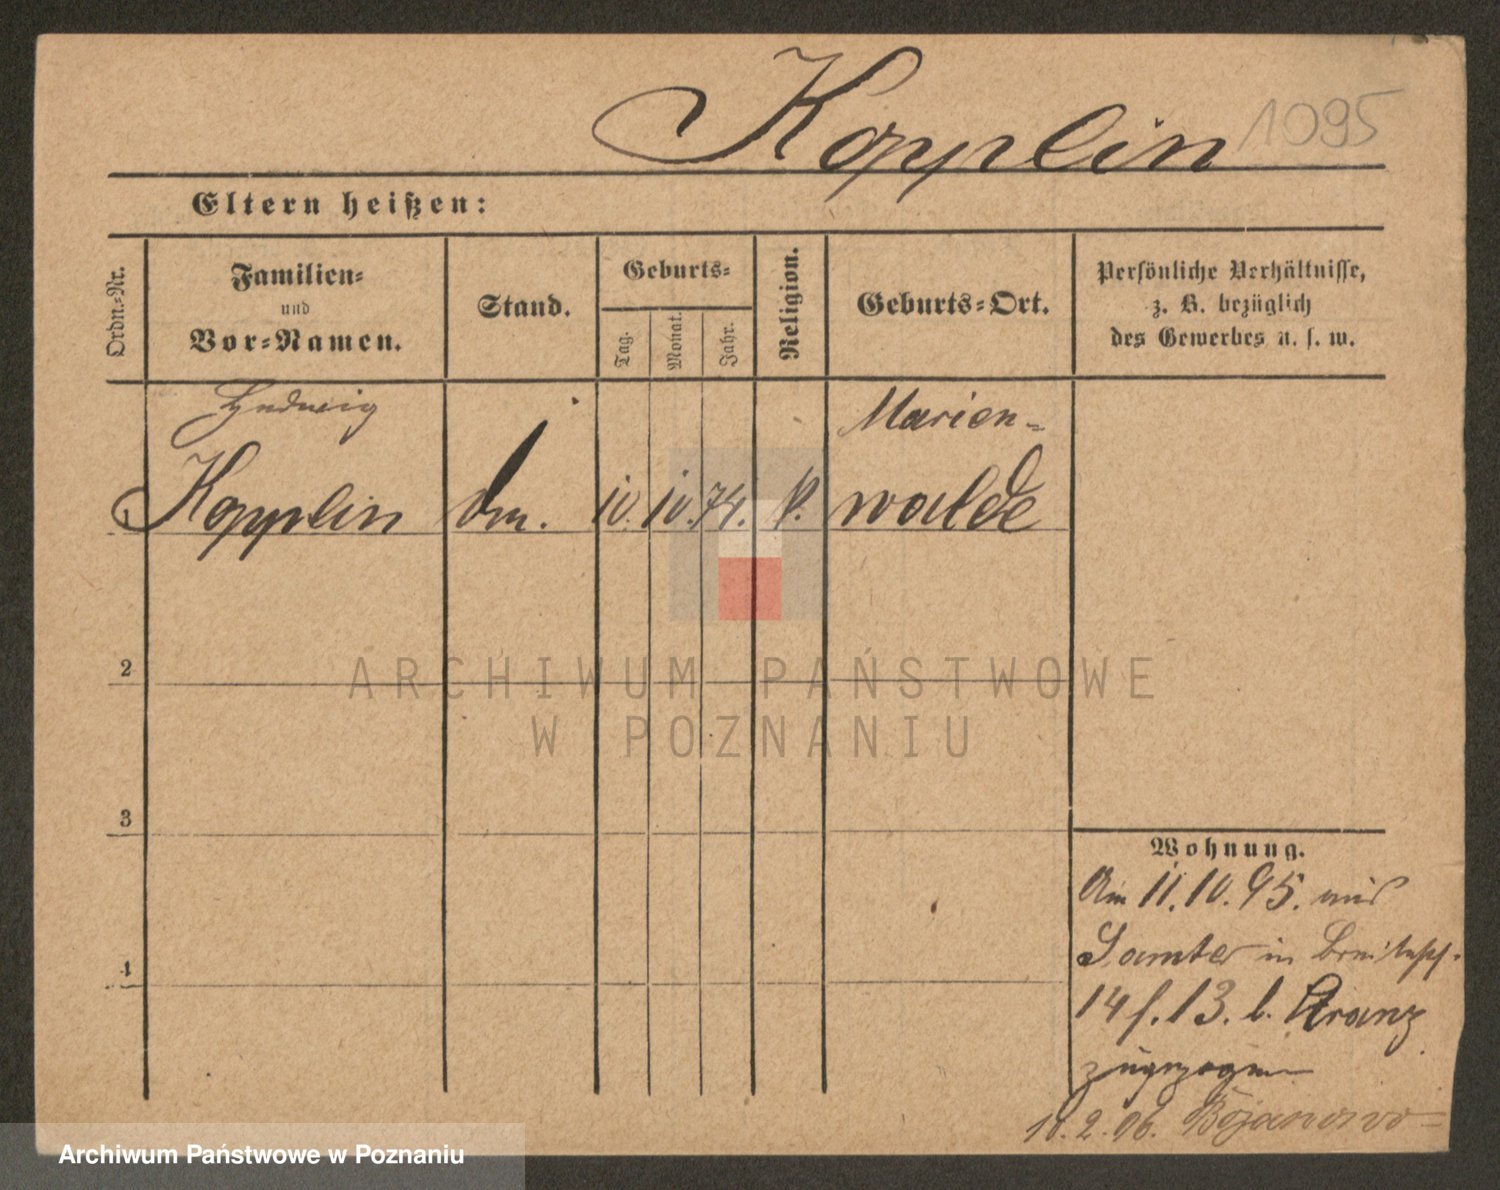 Kopplin 1095
Eltern heißen:
Ordn.-Nr.
Familien-
und
Vor-Namen.
Stand.
Geburts-
Tag.
Monat.
Jahr.
Religion.
Geburts-Ort.
Persönliche Verhältnisse,
z. B. bezüglich
des Gewerbes u. s. w.
Hedwig
Marien-
1 Kopplin
10. 10. 74.
walde
2
3
4
Wohnung.
Am 11. 10. 95. aus
Samter in
14 f. 13. b. Kranz
zugezogen
10. 2. 96. Bojanowo
ARCHIWUM PAŃSTWOWE
W POZNANIU
Archiwum Państwowe w Poznaniu